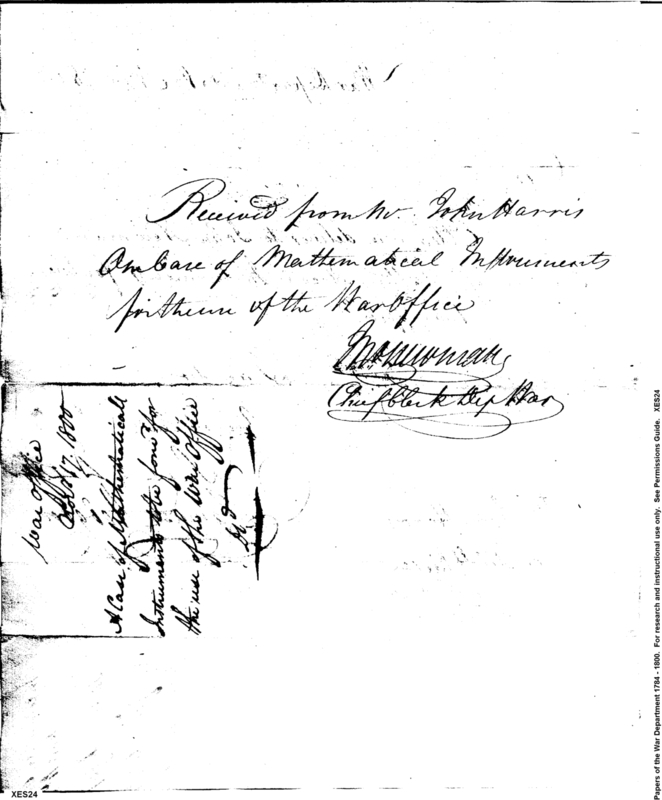 Received from Mr. John Harris
One Case of Mathematical Instruments
for the use of the War Office
Jno Newman
Chief Clerk Dep War
War Office
17, 1800
A Case of Mathematicall
Instruments to be for
the use of the War Office
XES24
Papers of the War Department 1784 - 1800. For research and instructional use only. See Permissions Guide. XES24